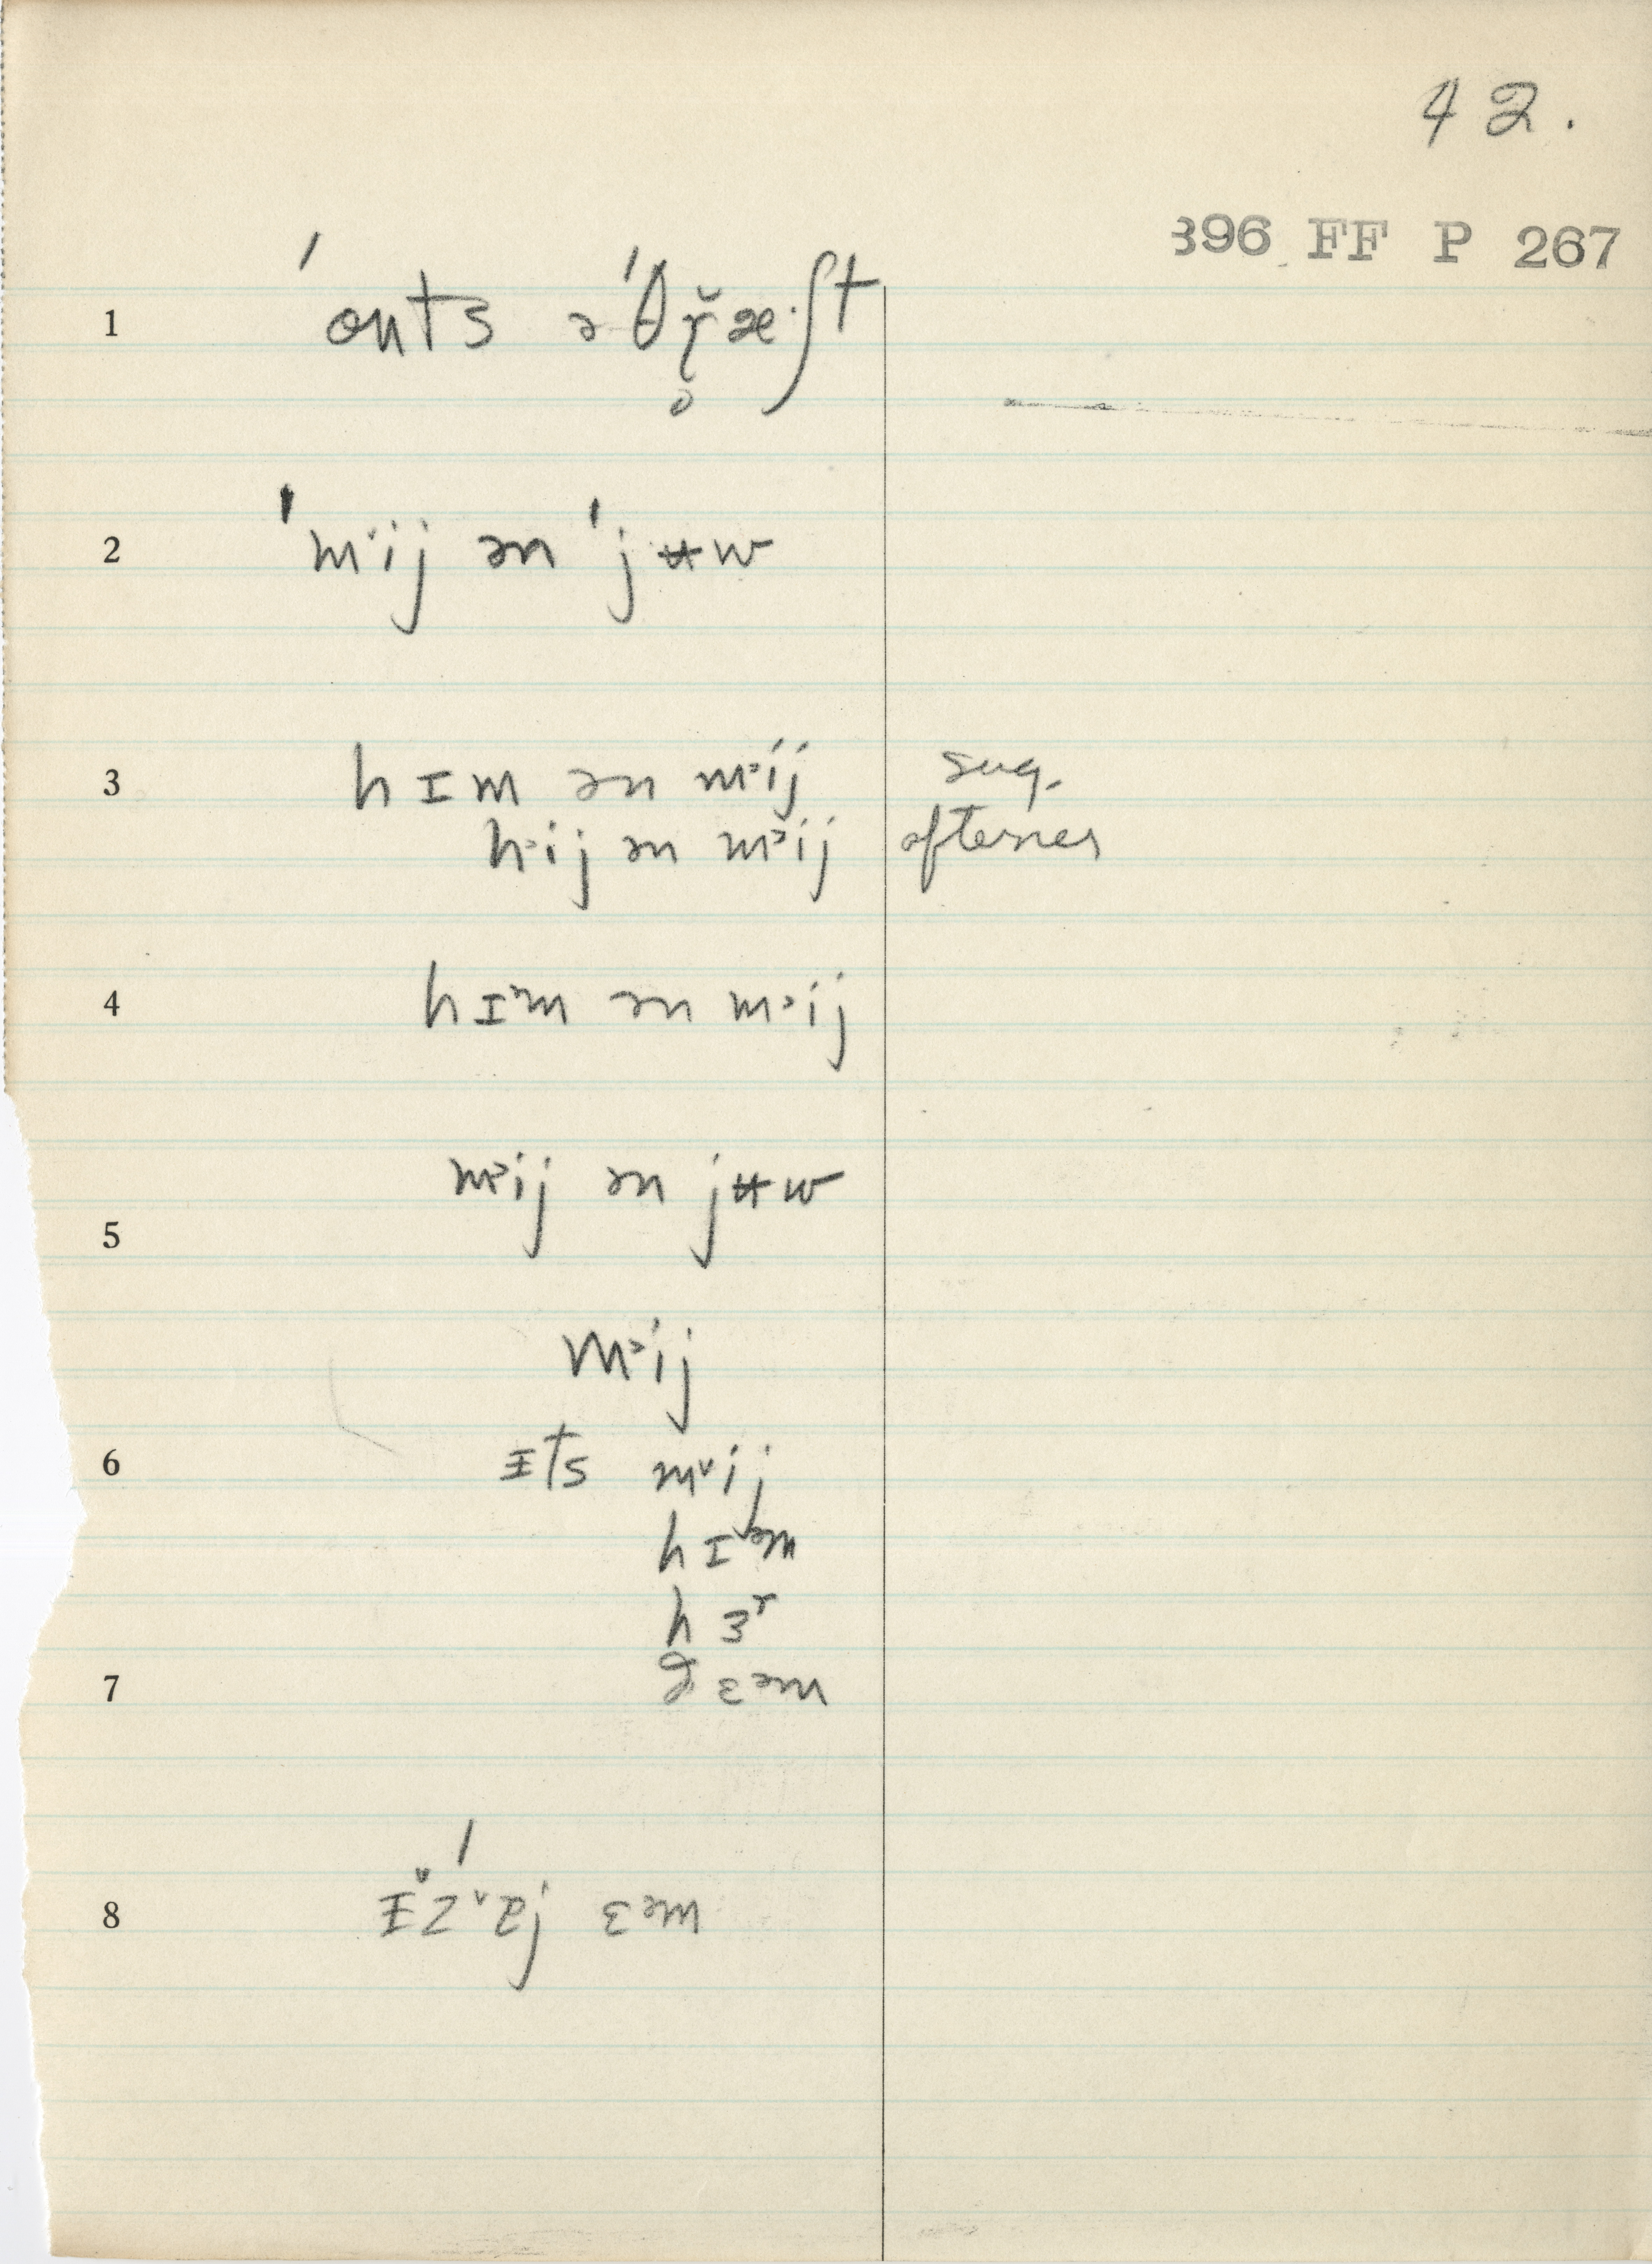 42.
396 FF P 267
1 ˈonts əˈθɤ̥̆æ·ʃt
2 ˈmˑij ənˈjʉw
3 hɪm ən m˃ij sug.
h˃ij ən m˃ij oftener
4 hɪᵊm ən m˃ij
m˃ij ən jʉw
5
m˃ij
6 ɪts mᵛij
hɪᵊm
hɜʳ
7 ðɛᵊm
8 ɪzɐj ɛᵊm